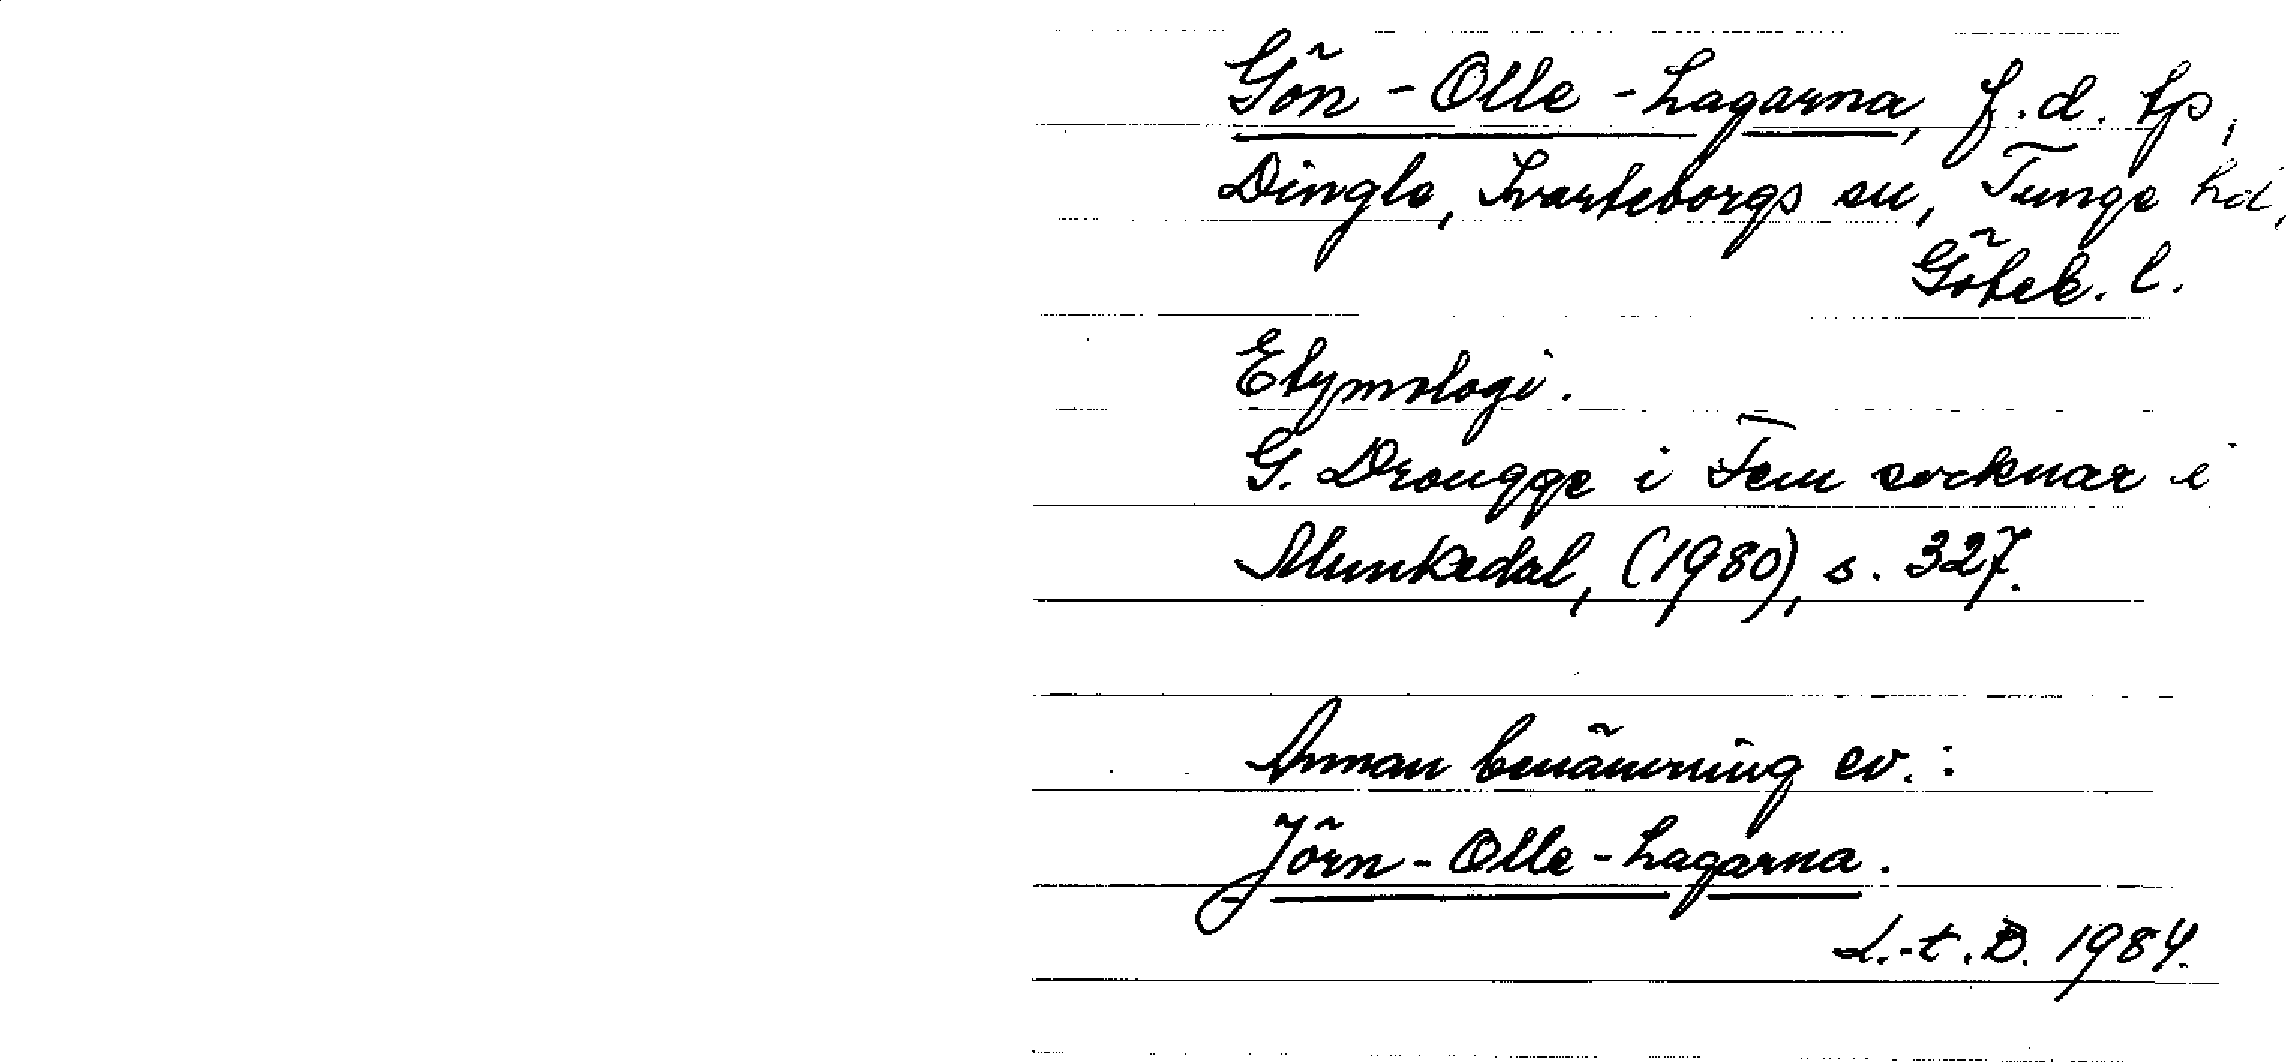 Gön-Olle-Lagarna, f.d. tp,
Dingle, Svarteborgs sn, Tunge hd,
Göteb. l.
Etymologi.
G. Drougge i Fem socknar i
Munkedal, (1980), s. 327.
Annan benämning ev.:
Jörn-Olle-Lagarna.
L.-t.B. 1984.